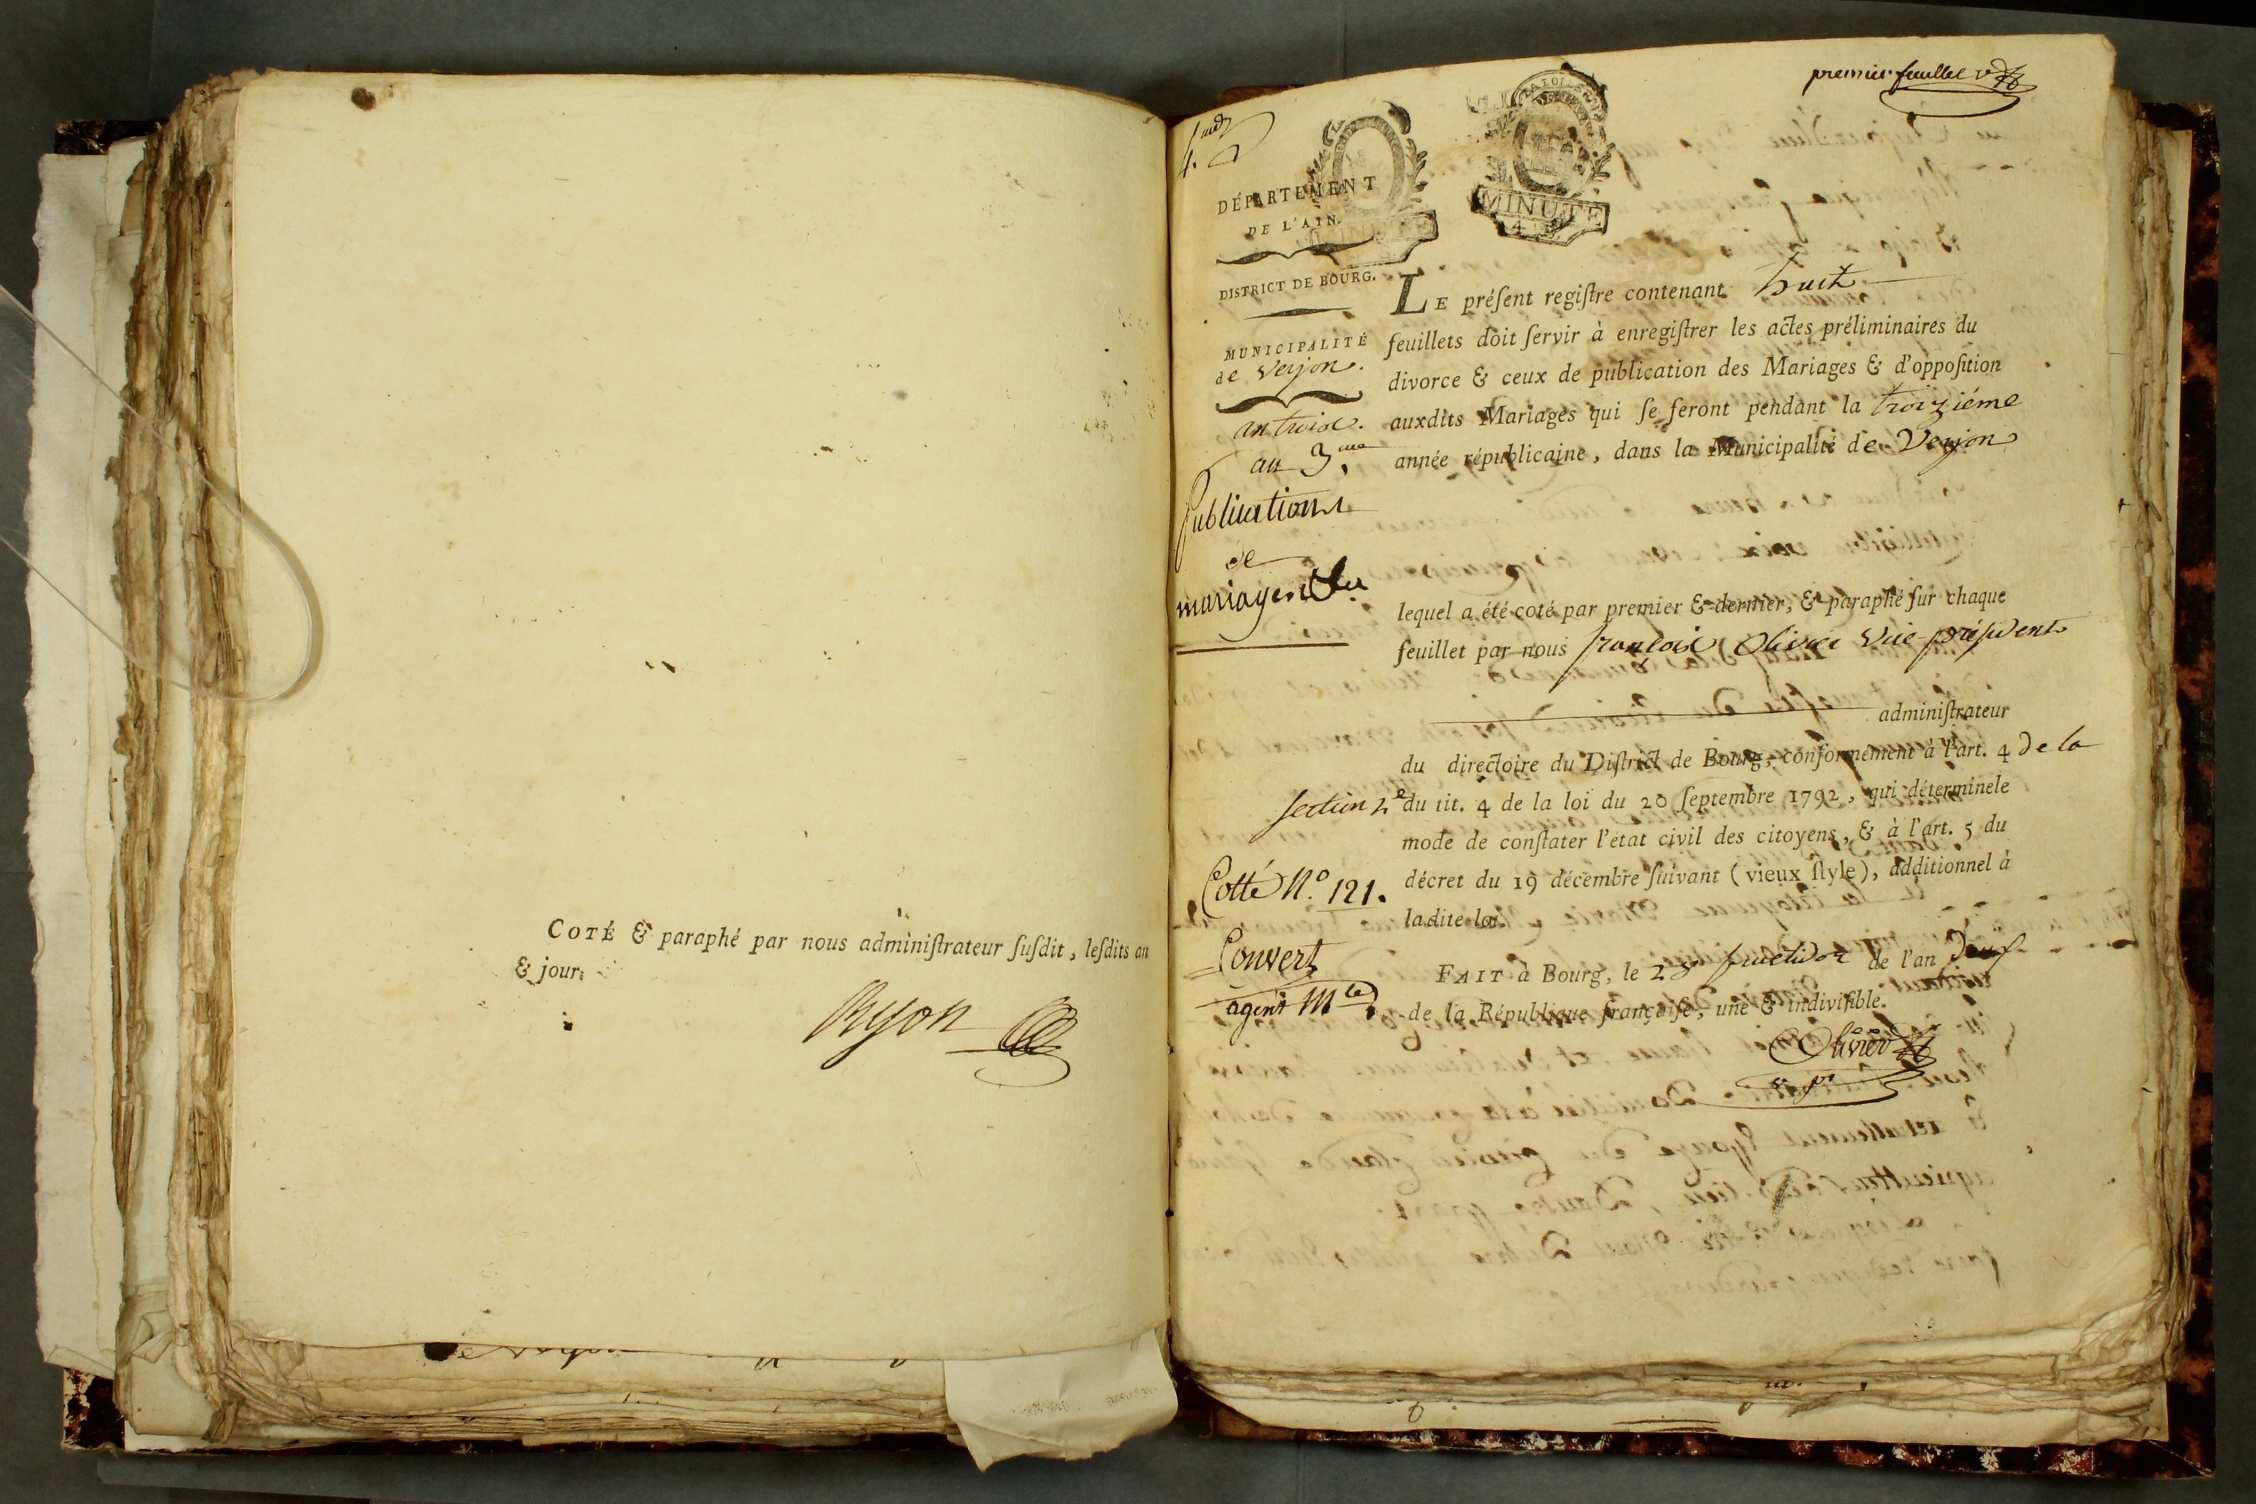 COTÉ & paraphé par nous adminiſtrateur ſuſdit, leſdits an
& jour.
Ryon
premier feuillet
MINUTE
DÉPARTEMENT
DE L'AIN.
DISTRICT DE BOURG.
MUNICIPALITÉ
de Verjon.
an trois.
an 3.me
Publications
de
mariages
Cotté N.o 121.
Convert
agent
LE préſent regiſtre contenant huit
feuillets doit ſervir à enregiſtrer les actes préliminaires du
divorce & ceux de publication des Mariages & d'oppoſition
auxdits Mariages qui ſe feront pendant la troiziéme
année républicaine, dans la Municipalité de Verjon
lequel a été coté par premier & dernier, & paraphé ſur chaque
feuillet par nous françois Olivier vice-préſident
adminiſtrateur
du directoire du Diſtrict de Bourg, conformément à l'art. 4 de la
section 2e du tit. 4 de la loi du 20 ſeptembre 1792, qui détermine le
mode de conſtater l'état civil des citoyens, & à l'art. 5 du
décret du 19 décembre ſuivant (vieux ſtyle), additionnel à
ladite loi.
FAIT à Bourg, le fructidor de l'an deux
de la République françaiſe, une & indiviſible.
Olivier